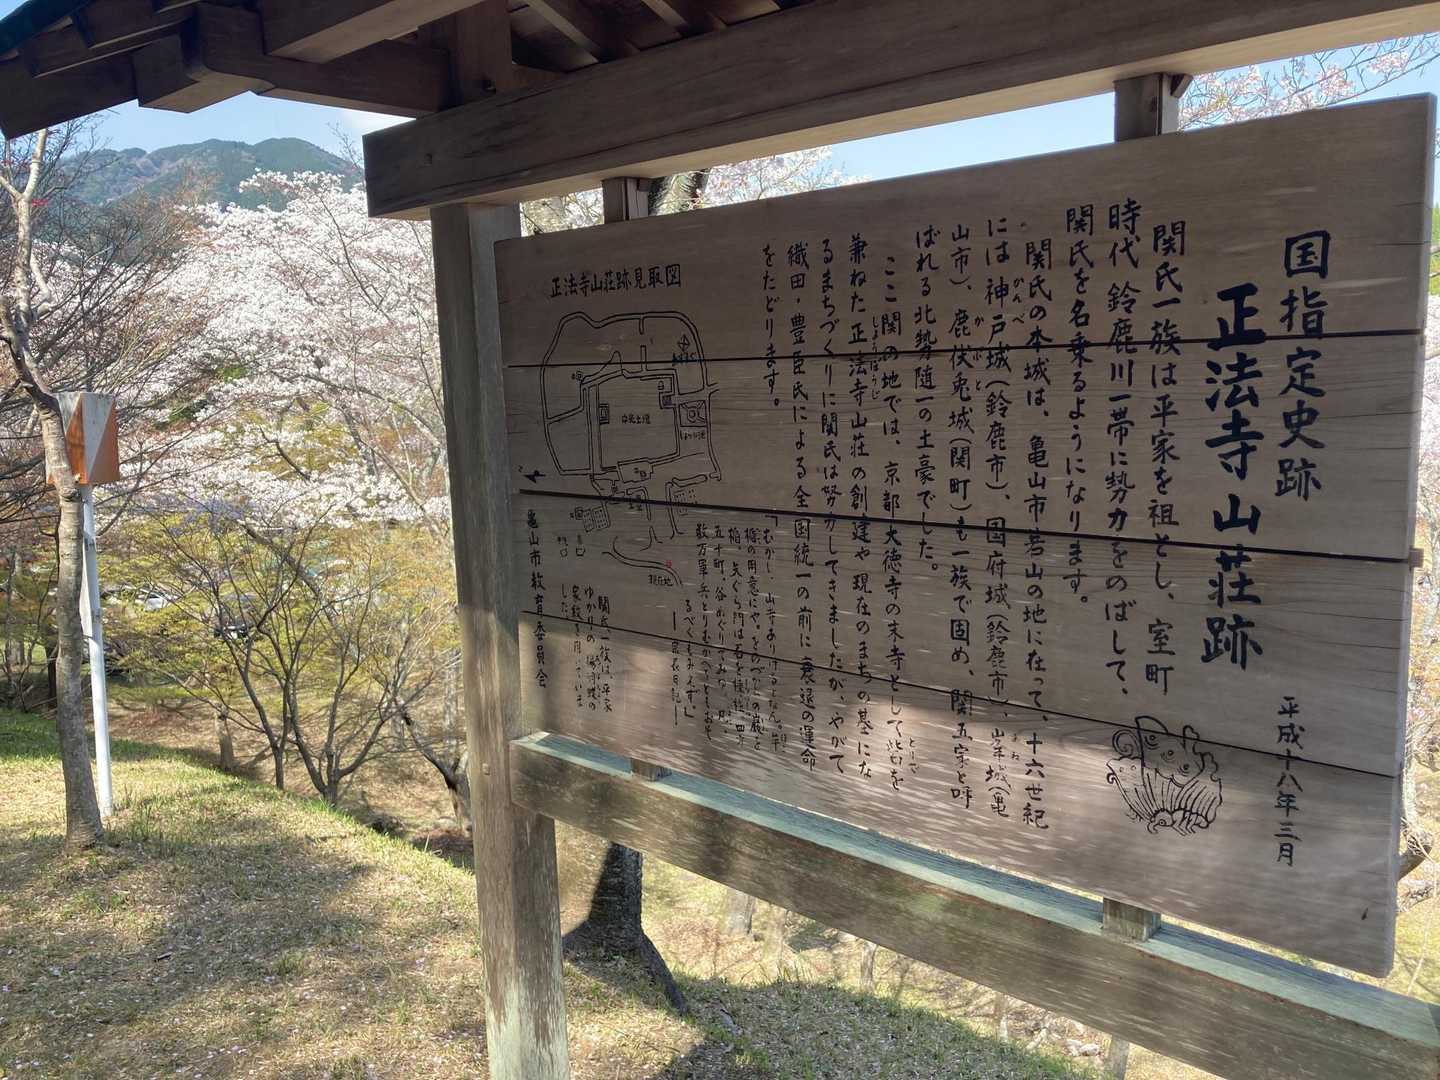 国指定史跡
正法寺山荘跡
平成十八年三月
関氏一族は平家を祖とし、室町
時代 鈴鹿川一帯に勢力をのばして、
関氏を名乗るようになります。
関氏の本城は、亀山市若山の地に在って、十六世紀
には神戸城(鈴鹿市)、国府城(鈴鹿市)、峯城(亀
かんべ
みね
山市)、鹿伏兎城(関町)も一族で固め、関五家と呼
かぶと
ばれる北勢随一の土豪でした。
ここ関の地では、京都大徳寺の末寺として砦を
とりで
兼ねた正法寺山荘の創建や現在のまちの基にな
しょうほうじ
るまちづくりに関氏は努力してきましたが、やがて
織田・豊臣氏による全国統一の前に衰退の運命
をたどります。
正法寺山荘跡見取図
現在地
「むかし、山寺ありけるとなん。
五十町、谷めぐりてみな
るべくもみえず。」
関氏一族は、平家
ゆかりの揚羽蝶の
家紋を用いていま
した。
亀山市教育委員会